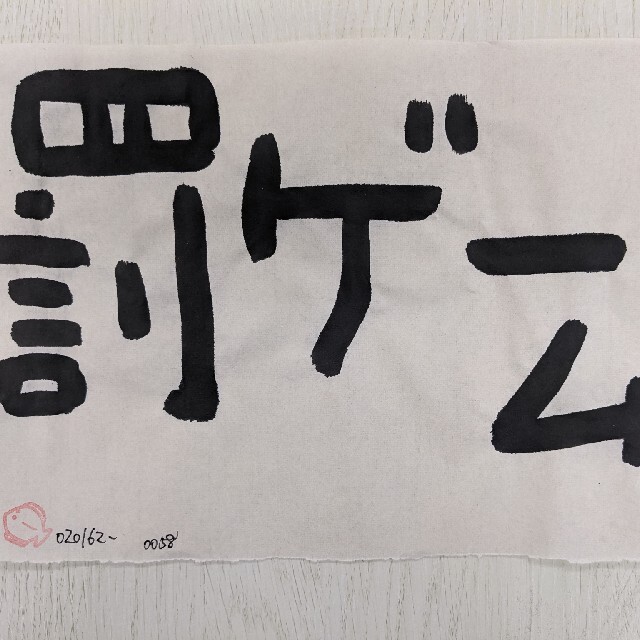 罰ゲーム
020162~ 0058